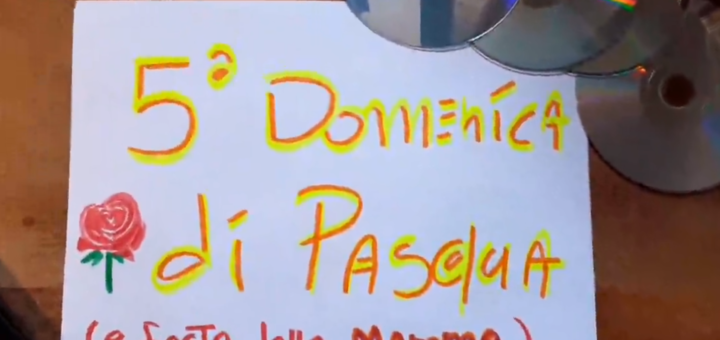 5ª DOMENICA
di PASQUA
(e festa della Mamma)